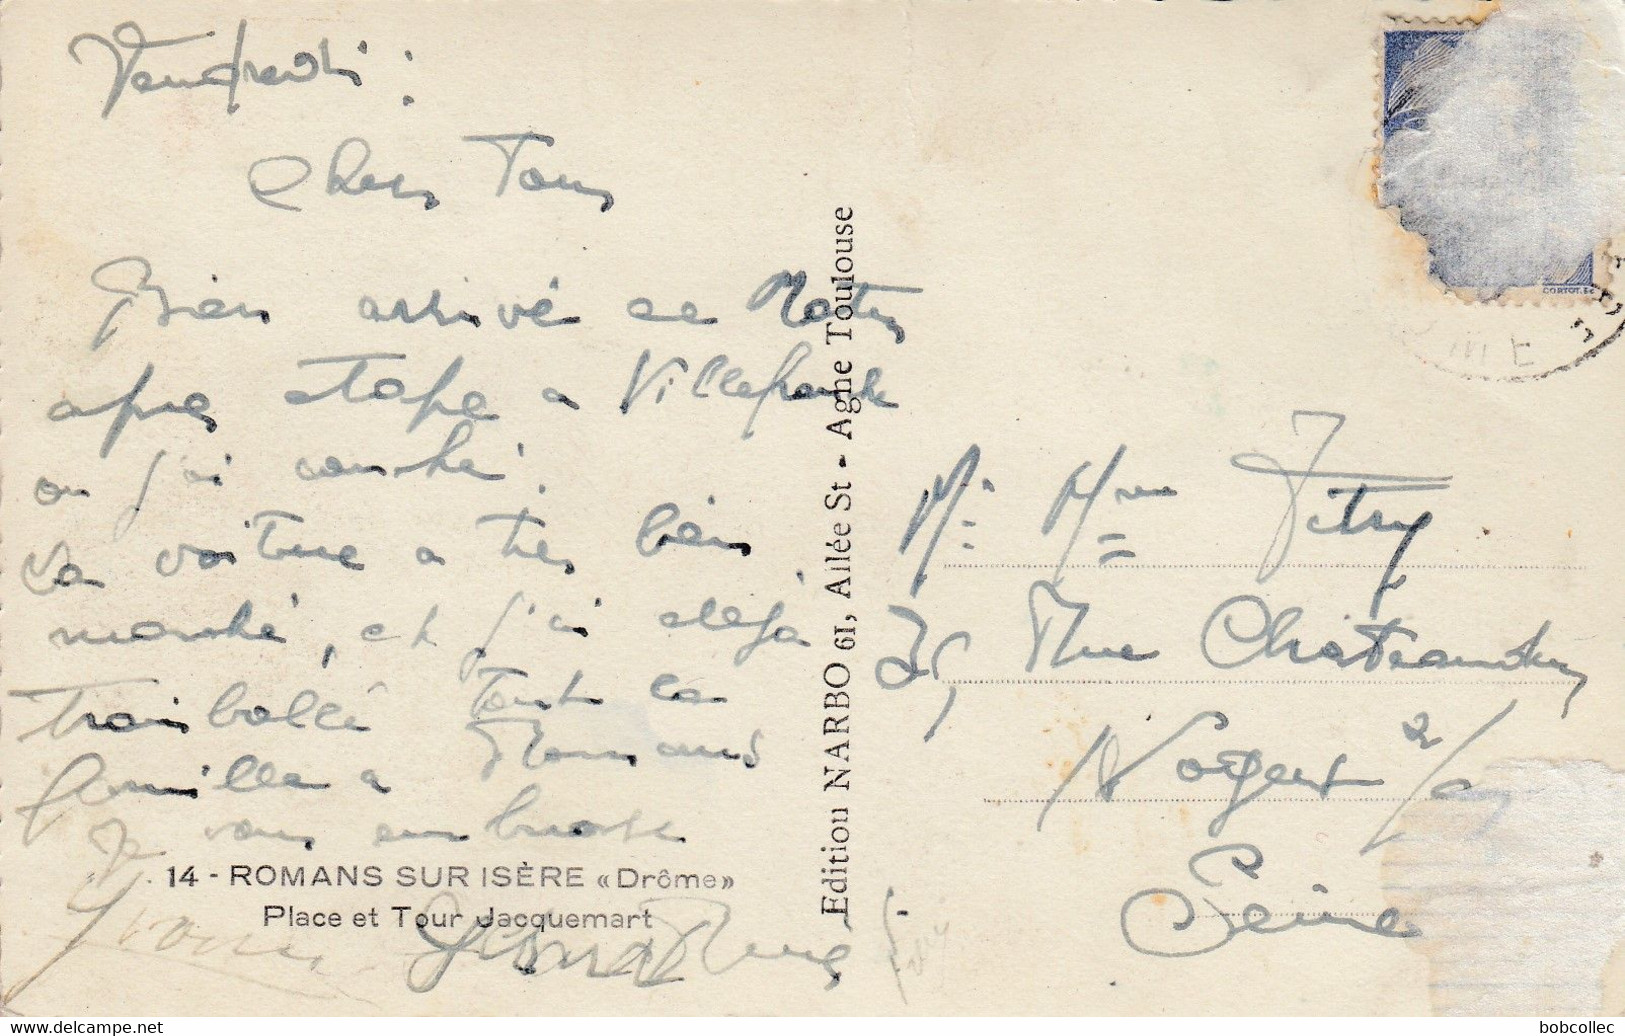 Vendredi :
Chers Tous
Bien arrivé ce Matin
apres etape a Villefranche
ou j'ai couché.
La voiture a tres bien
marché, et j'ai deja
trimballé toute la
famille a Romans
Je vous embrasse
14 - ROMANS SUR ISÈRE «Drôme»
Place et Tour Jacquemart
Edition NARBO 61, Allée St - Agne Toulouse
CORTOT. Sc
Mr Mme Vitry
35, Rue Chateaudun
Nogent s/
Seine
bobcollec